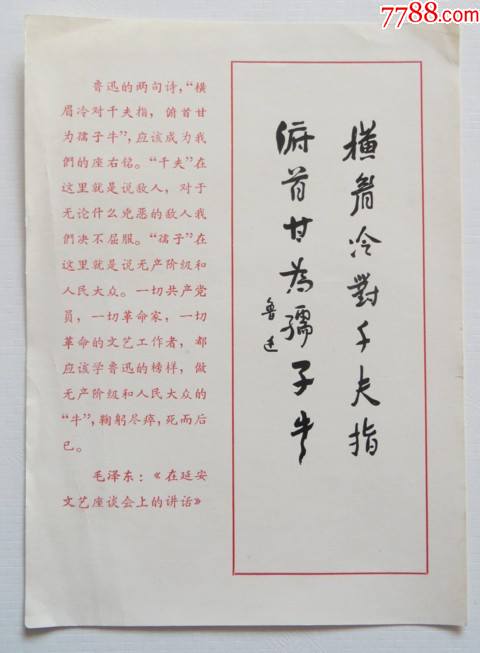 7788.com
鲁迅的两句诗，“横
眉冷对千夫指，俯首甘
为孺子牛”，应该成为我
們的座右铭。“千夫”在
这里就是说敌人，对于
无论什么兇恶的敌人我
們决不屈服。“孺子”在
这里就是说无产阶级和
人民大众。一切共产党
員，一切革命家，一切
革命的文艺工作者，都
应该学鲁迅的榜样，做
无产阶级和人民大众的
“牛”，鞠躬尽瘁，死而后
已。
毛泽东：《在延安
文艺座谈会上的讲话》
横眉冷對千夫指
俯首甘為孺子牛
鲁迅